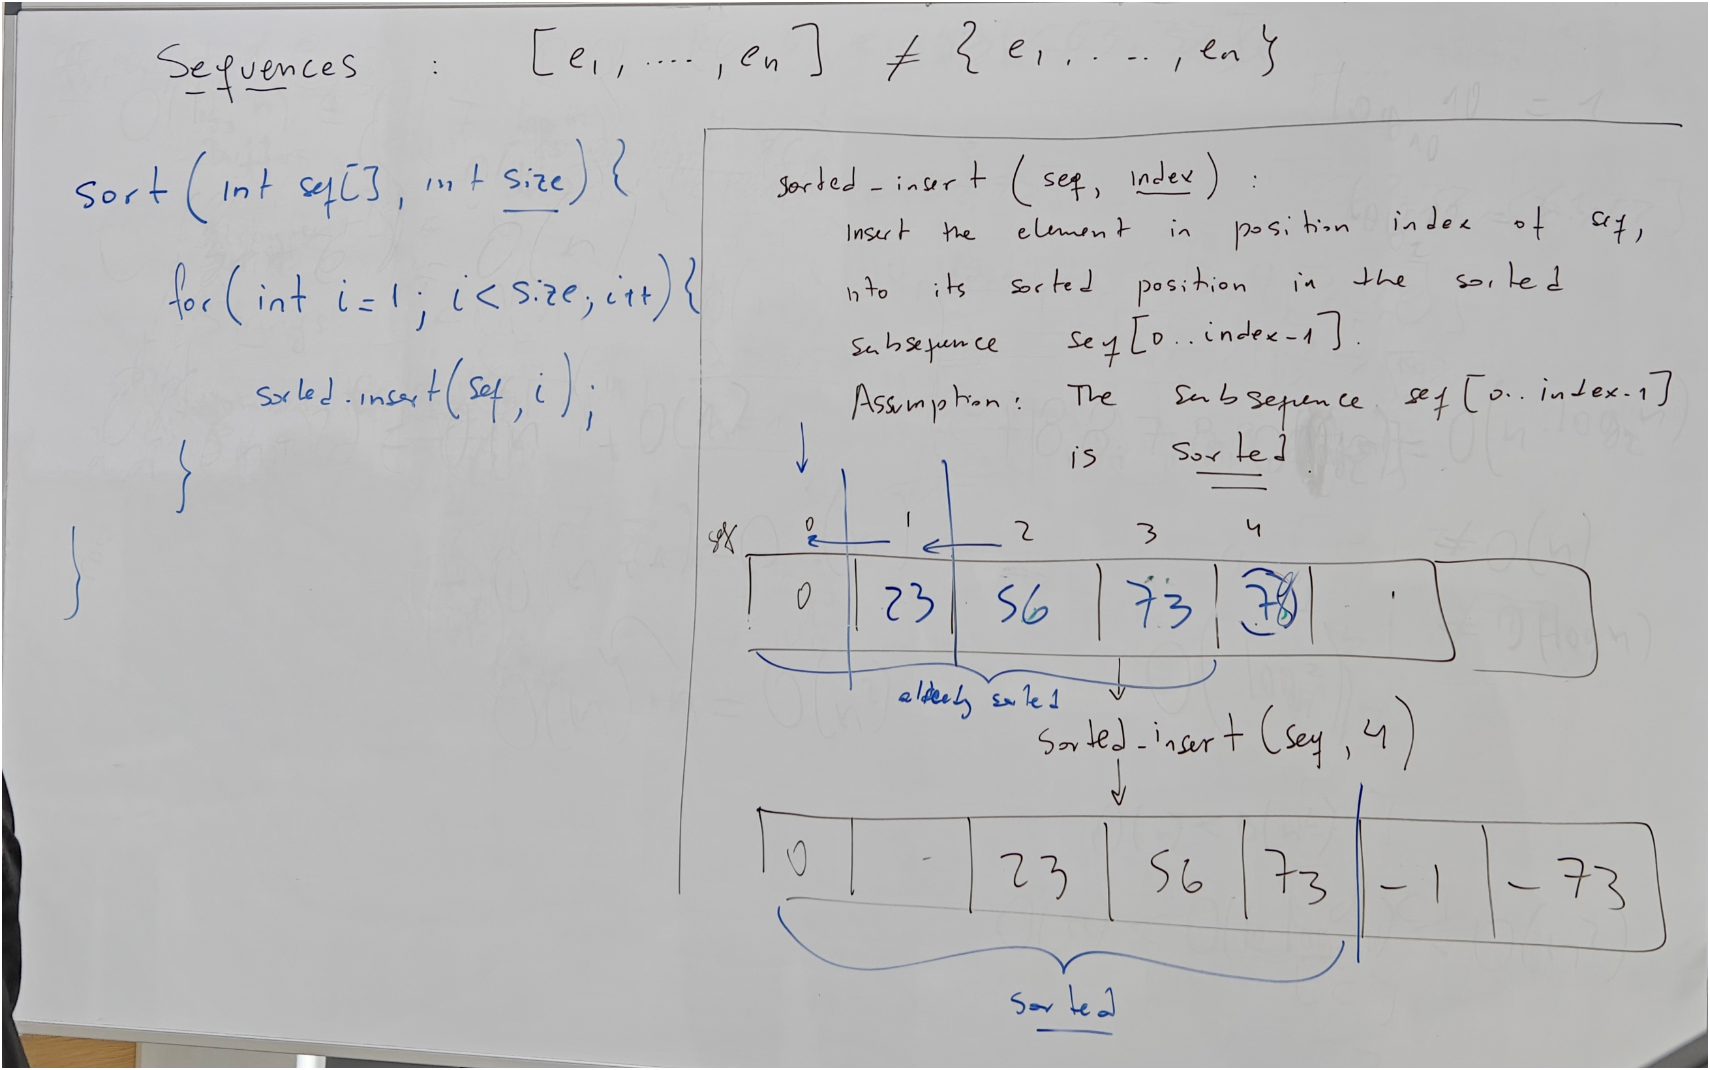 Sequences : [e1, ...., en] ≠ { e1, ...., en }
sort ( int seq[], int size ) {
for ( int i = 1; i < size; i++ ) {
sorted_insert ( seq, i );
}
}
sorted_insert ( seq, index ) :
Insert the element in position index of seq,
into its sorted position in the sorted
subsequence seq [0..index-1].
Assumption: The subsequence seq [0..index-1]
is sorted.
0 1 2 3 4
0 23 56 73
already sorted
sorted_insert (seq, 4)
0 23 56 73 -1 -73
sorted